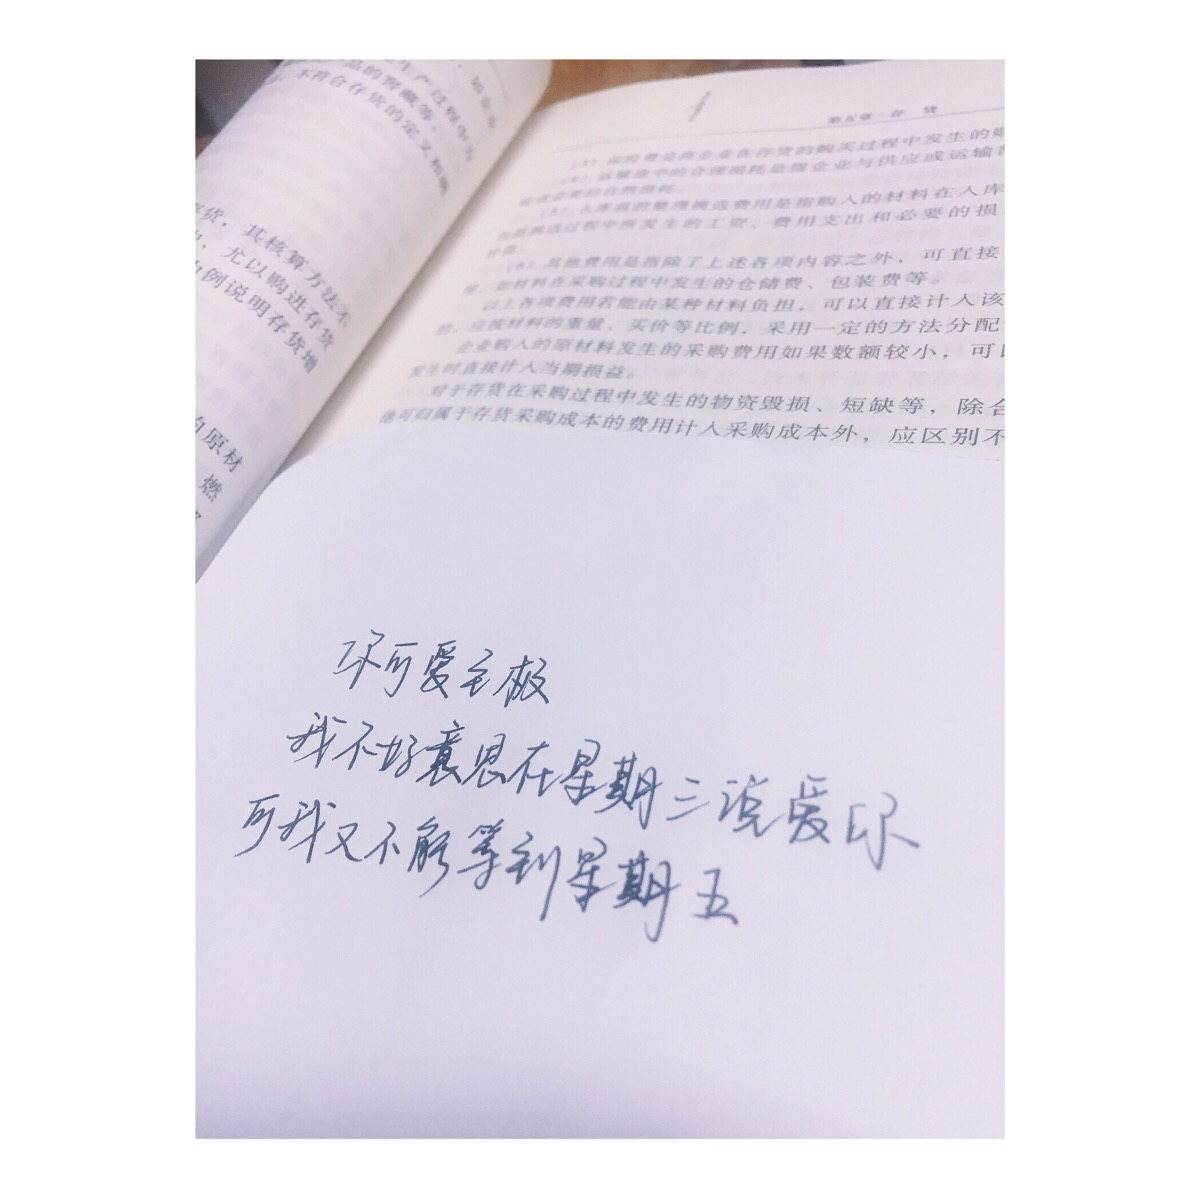 生产过程中为
产品的窖藏等、
不符合存货的定义和确
存货，其核算方法不
尤以购进存货
为例说明存货增
的原材
燃
第五章 存 货
（3）保险费是指企业在存货的购买过程中发生的财
（4）运输途中的合理损耗是指企业与供应或运输部
或必要的自然损耗。
（5）入库前的整理挑选费用是指购入的材料在入库
挑选过程中所发生的工资、费用支出和必要的损
价值。
（6）其他费用是指除了上述各项内容之外，可直接
用，如材料在采购过程中发生的仓储费、包装费等。
以上各项费用若能由某种材料负担，可以直接计入该
的，应按材料的重量、买价等比例，采用一定的方法分配
企业购入的原材料发生的采购费用如果数额较小，可以
发生时直接计入当期损益。
对于存货在采购过程中发生的物资毁损、短缺等，除合
他可归属于存货采购成本的费用计入采购成本外，应区别不
你可爱至极
我不好意思在星期三说爱你
可我又不能等到星期五